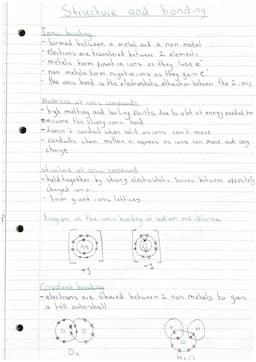 Structure and bonding
Ionic bonding
- formed between a metal and a non metal
- electrons are transferred between 2 elements
- metals form positive ions as they lose e⁻
- non metals form negative ions as they gain e⁻
- the ionic bond is the electrostatic attraction between the 2 ions
Properties of ionic compounds
- high melting and boiling points due to alot of energy needed to
overcome the strong ionic bond
- doesn't conduct when solid as ions can't move
- conducts when molten or aqueous as ions can move and carry
charge
structure of ionic compound
- held together by strong electrostatic forces between oppositely
charged ions
- form giant ionic lattices
diagram of the ionic bonding of sodium and chlorine
+1 -1
Covalent bonding
- electrons are shared between 2 non metals to gain
a full outer shell
O₂ H₂O